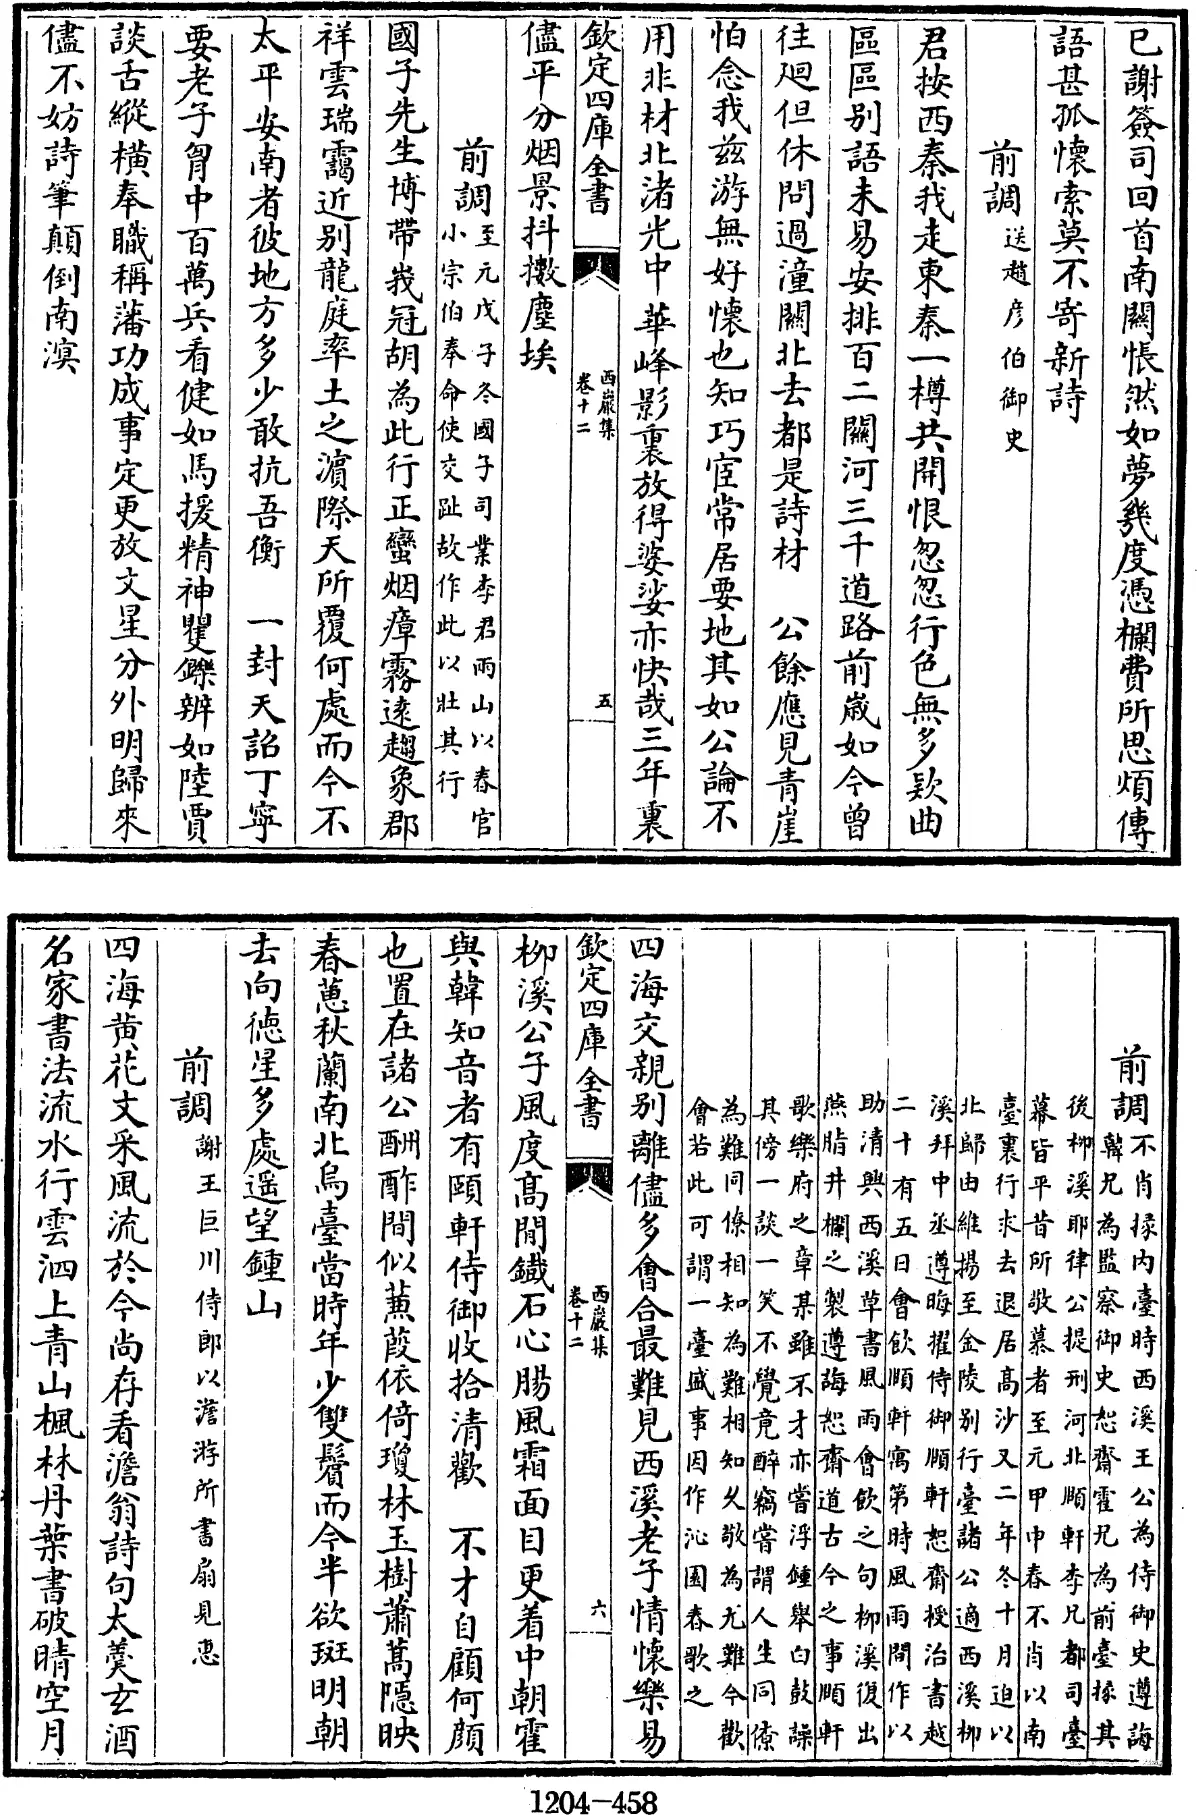 已謝簽司回首南闗悵然如夢幾度憑欄費所思煩傳
語甚孤懷索莫不寄新詩
前調送趙彦伯御史
君按西秦我走東秦一樽共開恨忽忽行色無多欵曲
區區别語未易安排百二闗河三千道路前歳如今曾
往廻但休問過潼闗北去都是詩材　公餘應見青崖
怕念我兹游無好懷也知巧宦常居要地其如公論不
用非材北渚光中華峰影裏放得婆娑亦快哉三年裏
欽定四庫全書
西巖集
卷十二
五
儘平分烟景抖擻塵埃
前調至元戊子冬國子司業李君雨山以春官
小宗伯奉命使交趾故作此以壯其行
國子先生博帶峩冠胡為此行正蠻烟瘴霧逺趨象郡
祥雲瑞靄近别龍庭率土之濵際天所覆何處而今不
太平安南者彼地方多少敢抗吾衡　一封天詔丁寧
要老子胷中百萬兵看健如馬援精神矍鑠辨如陸賈
談舌縱横奉職稱藩功成事定更放文星分外明歸來
儘不妨詩筆顛倒南溟
前調不肖掾内臺時西溪王公為侍御史遵誨
韓兄為監察御史恕齋霍兄為前臺掾其
後柳溪耶律公提刑河北順軒李兄都司臺
幕皆平昔所敬慕者至元甲申春不肖以南
臺裏行求去退居高沙又二年冬十月迫以
北歸由維揚至金陵别行臺諸公適西溪柳
溪拜中丞遵晦擢侍御順軒恕齋授治書越
二十有五日會飲順軒寓第時風雨間作以
助清興西溪草書風雨會飲之句柳溪復出
燕脂井欄之製遵誨恕齋道古今之事順軒
歌樂府之章某雖不才亦嘗浮鍾舉白鼓譟
其傍一談一笑不覺竟醉竊嘗謂人生同僚
為難同僚相知為難相知久敬為尤難今歡
會若此可謂一臺盛事因作沁園春歌之
四海交親别離儘多會合最難見西溪老子情懷樂易
欽定四庫全書
西巖集
卷十二
六
柳溪公子風度髙閒鐵石心腸風霜面目更着中朝霍
與韓知音者有頥軒侍御收拾清歡　不才自顧何顔
也置在諸公酬酢間似蒹葭依倚瓊林玉樹蕭蒿隱映
春蕙秋蘭南北烏臺當時年少雙鬢而今半欲斑明朝
去向徳星多處遥望鍾山
前調謝王巨川侍郎以澹游所書扇見惠
四海黄花文采風流於今尚存看澹翁詩句太羮玄酒
名家書法流水行雲泗上青山楓林丹葉書破晴空月
1204-458